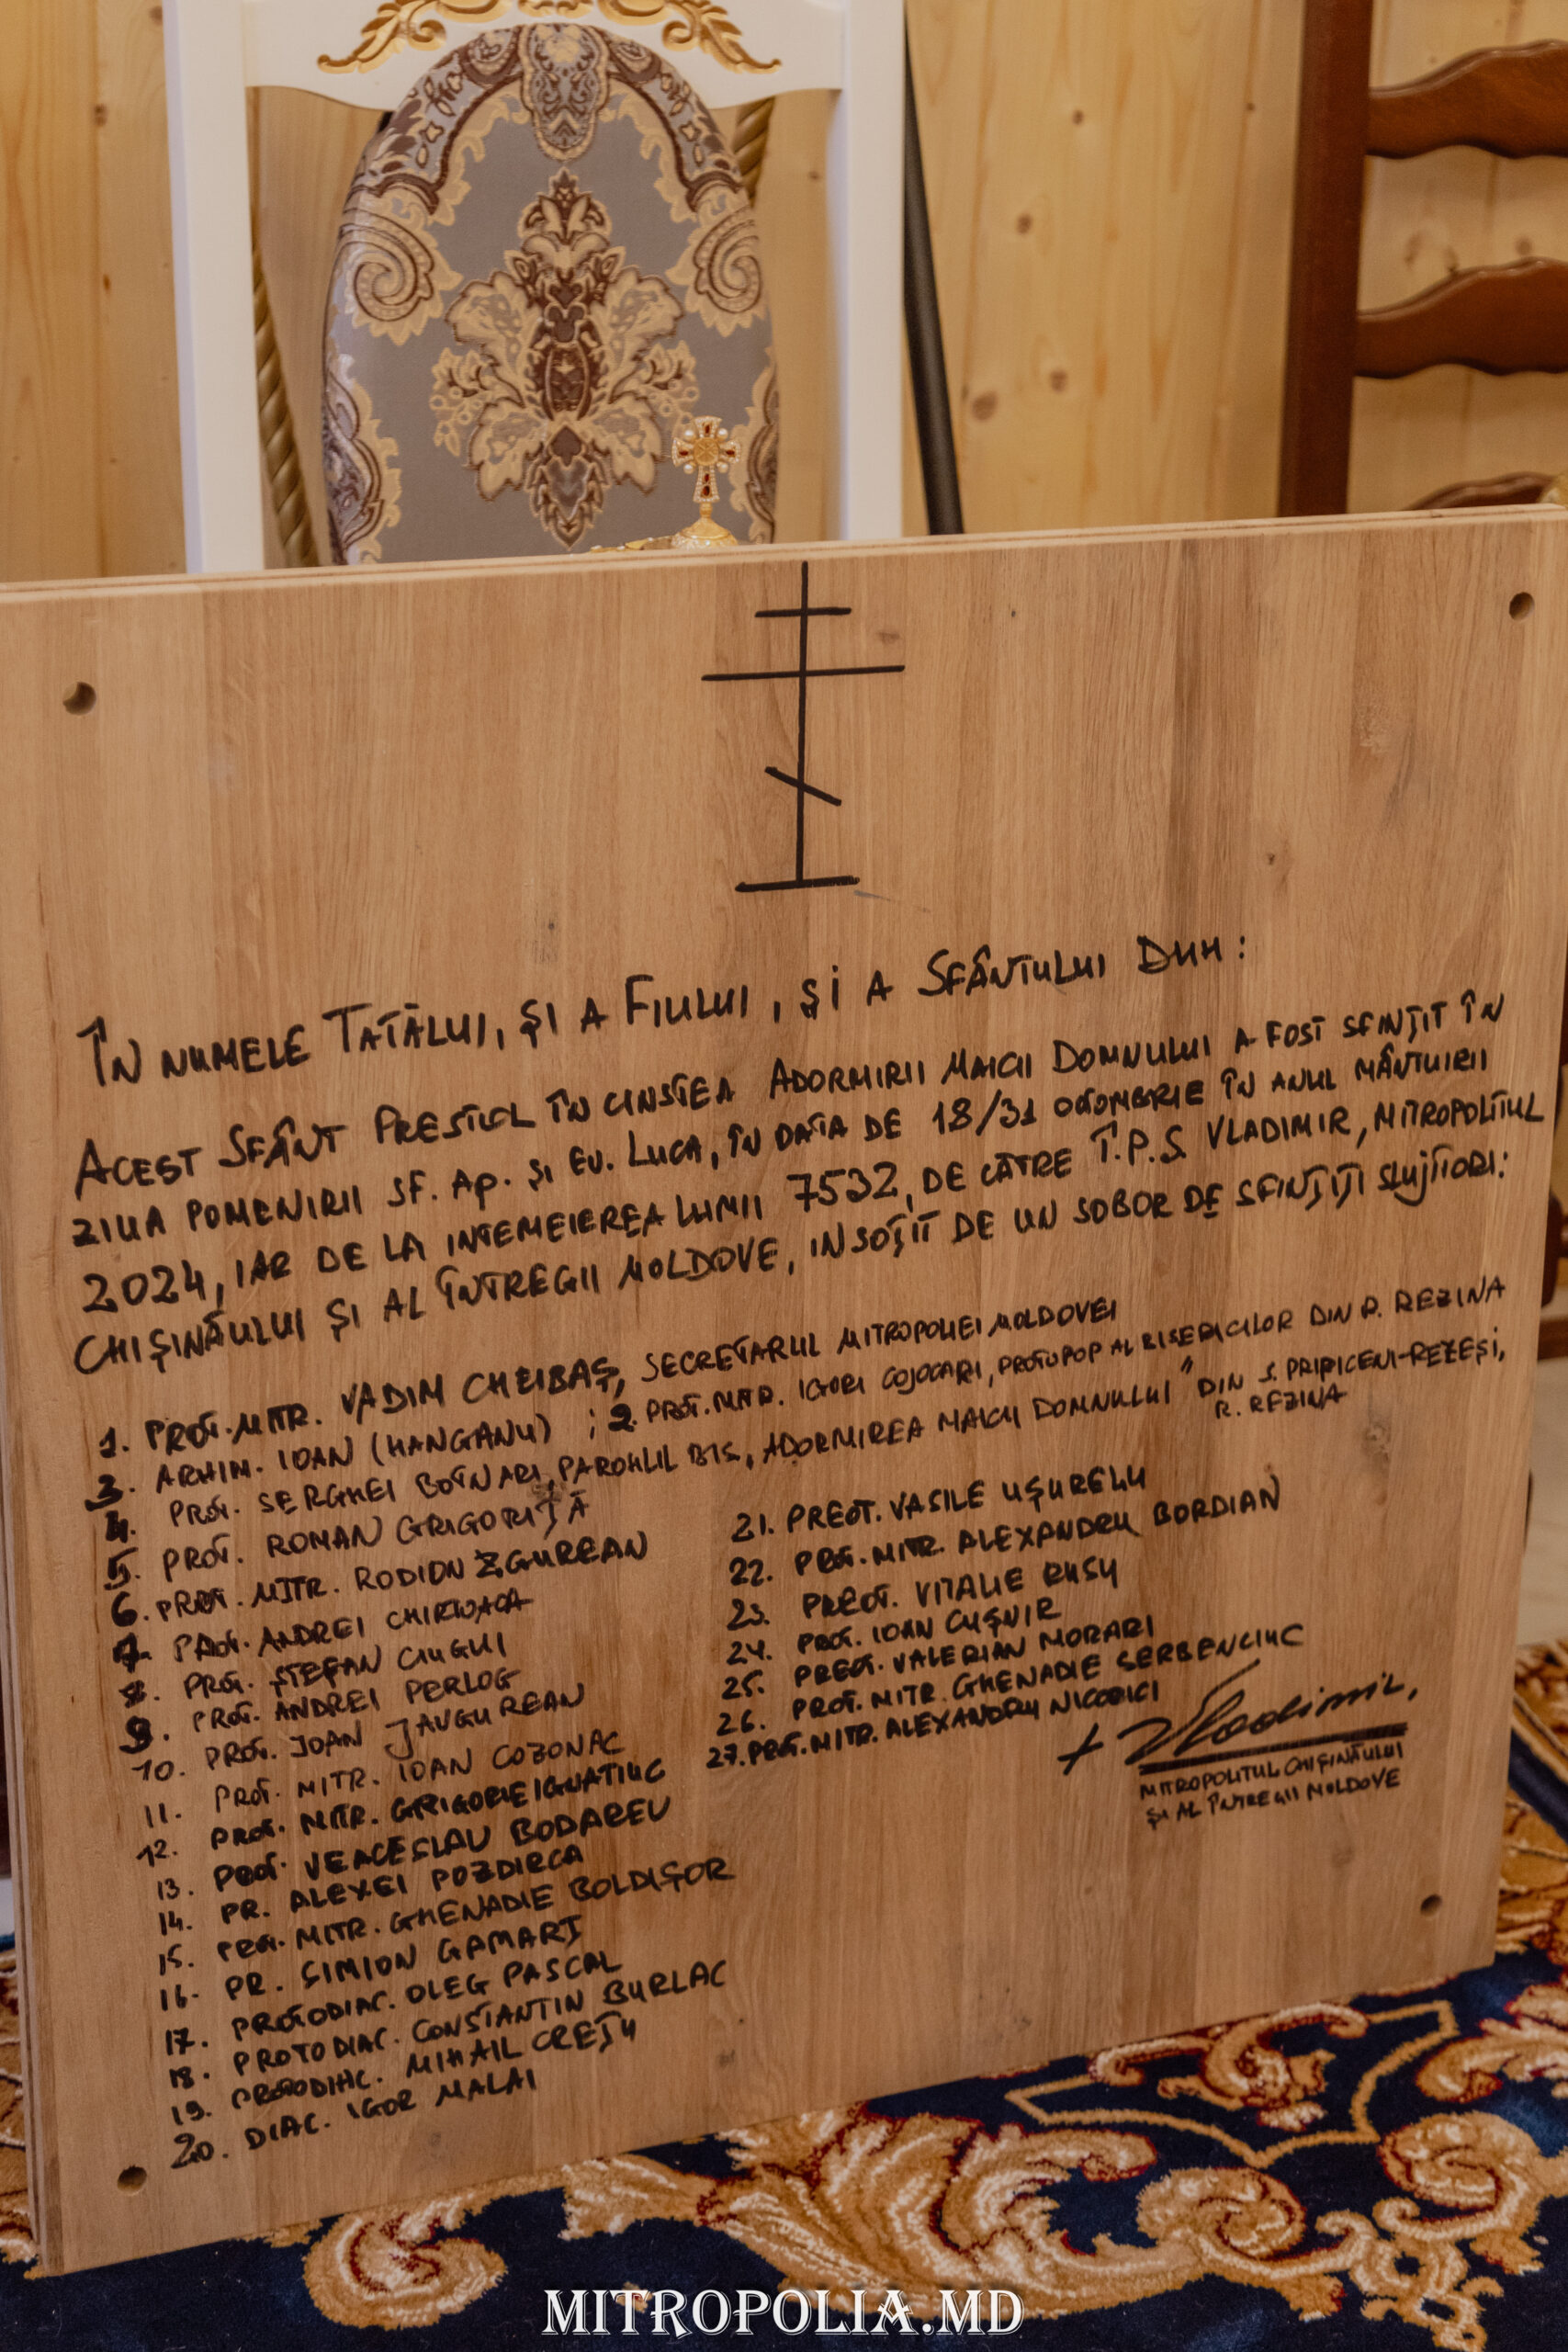 ÎN NUMELE TATĂLUI, ȘI A FIULUI, ȘI A SFÂNTULUI DUH:
ACEST SFÂNT PRESTOL ÎN CINSTEA ADORMIRII MAICII DOMNULUI A FOST SFINȚIT ÎN
ZIUA POMENIRII SF. AP. ȘI EV. LUCA, ÎN DATA DE 18/31 OCTOMBRIE ÎN ANUL MÂNTUIRII
2024, IAR DE LA INTEMEIEREA LUMII 7532, DE CĂTRE Î.P.S. VLADIMIR, MITROPOLITUL
CHIȘINĂULUI ȘI AL ÎNTREGII MOLDOVE, INSOȚIT DE UN SOBOR DE SFINȚIȚI SLUJITORI:
1. PROT. MITR. VADIM CHEIBAȘ, SECRETARUL MITROPOLIEI MOLDOVEI
3. ARHIM. IOAN (HANGANU) ; 2. PROT. MITR. IGORI COJOCARI, PROTOPOP AL BISERICILOR DIN R. REZINA
4. PROT. SERGHEI BOTNARI, PAROHUL BIS. ADORMIREA MAICII DOMNULUI" DIN S. PRIPICENI-REZEȘI,
R. REZINA
5. PROT. ROMAN GRIGORIȚĂ
6. PROT. MITR. RODION ZGUREAN
7. PROT. ANDREI CHIRIOACA
8. PROT. ȘTEFAN CIUGUI
9. PROT. ANDREI PERLOG
10. PROT. IOAN JAVGUREAN
11. PROT. MITR. IOAN COZONAC
12. PROT. MITR. GRIGORE IGNATIUC
13. PROT. VEACESLAV BODAREV
14. PR. ALEXEI POZDIRCA
15. PROT. MITR. GHENADIE BOLDIȘOR
16. PR. SIMION GAMARȚ
17. PROTODIAC. OLEG PASCAL
18. PROTODIAC. CONSTANTIN BURLAC
19. PROTODIAC. MIHAIL CREȚU
20. DIAC. IGOR MALAI
21. PREOT. VASILE UȘURELU
22. PROT. MITR. ALEXANDRU BORDIAN
23. PREOT. VITALIE RUSU
24. PROT. IOAN CUȘNIR
25. PREOT. VALERIAN MORARI
26. PROT. MITR. GHENADIE SERBENCIUC
27. PROT. MITR. ALEXANDRU NICORICI
+ Vladimir,
MITROPOLITUL CHIȘINĂULUI
ȘI AL ÎNTREGII MOLDOVE
MITROPOLIA.MD